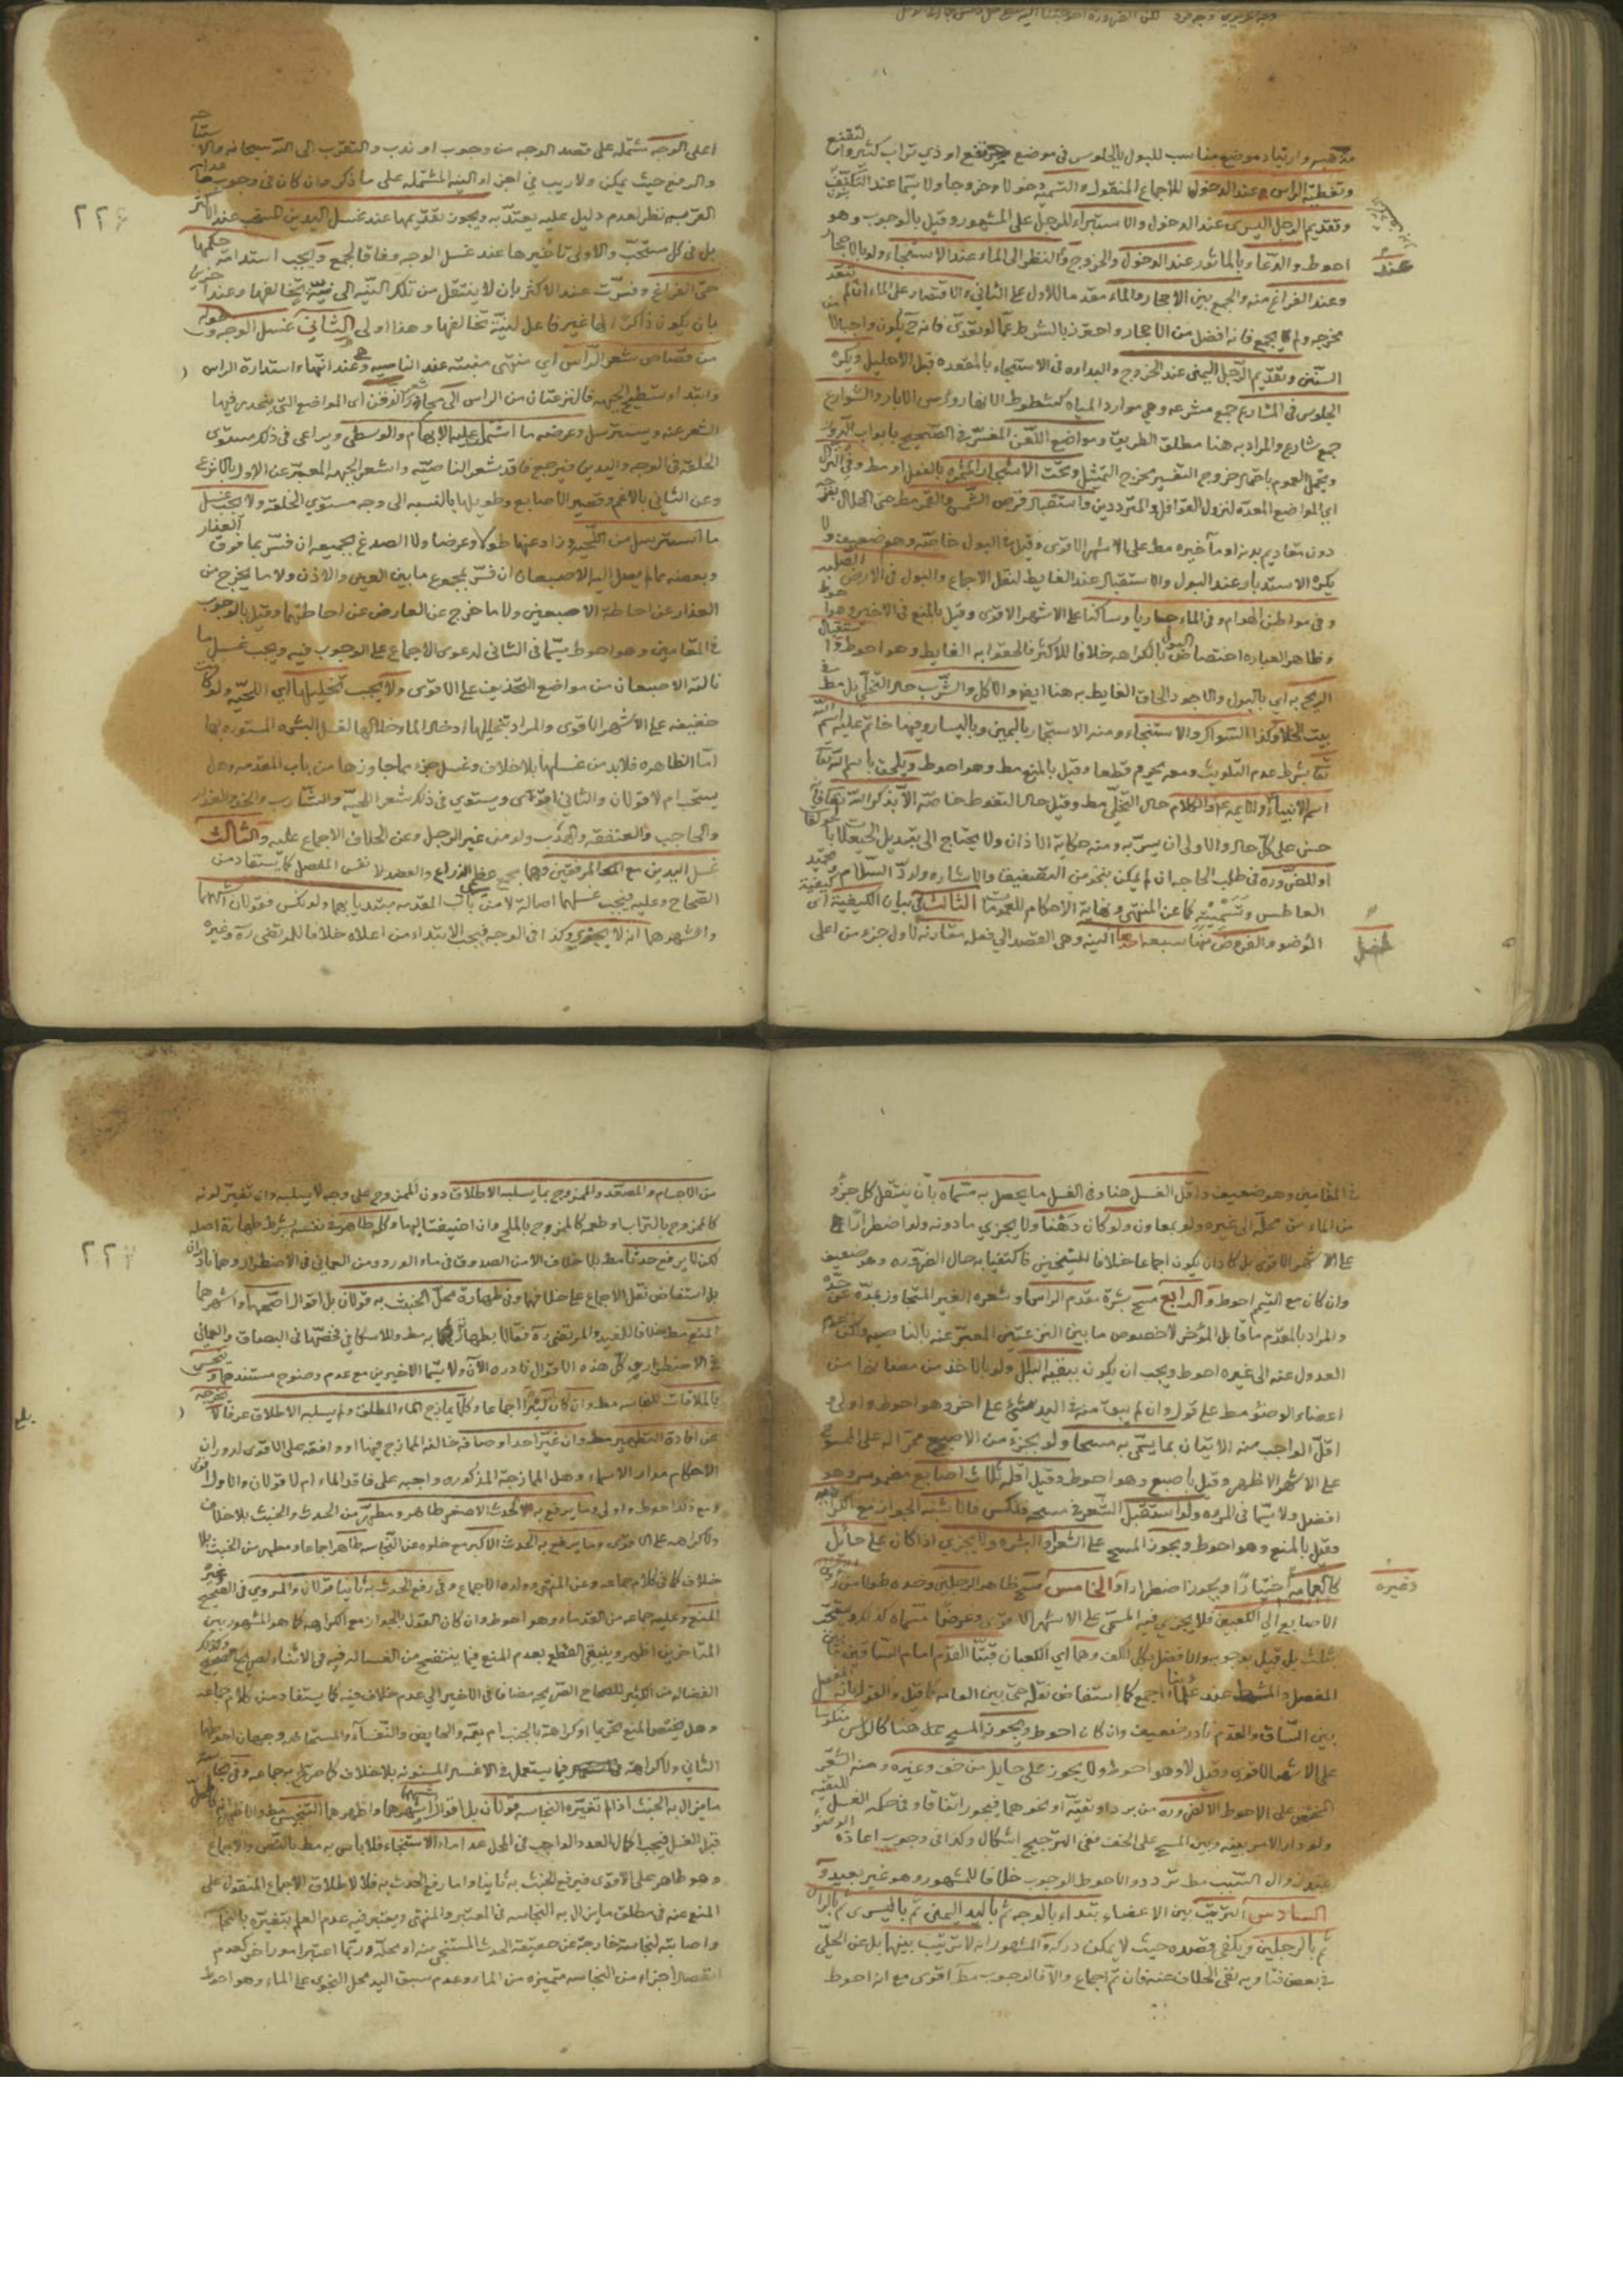 مذهبه وارتياد موضع مناسب للبول بالجلوس في موضع مرتفع او ذي تراب كثير وان لتقنع
وتغطية الراس عند الدخول للاجماع المنقول والتسمية دخولا وخروجا ولا سيما عند التكشف
وتقديم الرجل اليسرى عند الدخول والاستبراء للرجل على المشهور وقيل بالوجوب وهو
احوط والدعاء بالماثور عند الدخول والخروج والنظر الى الماء عند الاستنجاء ولو بالاحجار
عند
وعند الفراغ منه والجمع بين الاحجار والماء مقدما للاول على الثاني والاقتصار على الماء ان لم يتعد
مخرجه ولم يجمع فانه افضل من الاحجار واحترز بالشرط عما لو تعدى فانه ح يكون واجبا لا من
السنن وتقديم الرجل اليمنى عند الخروج والبداءه في الاستنجاء بالمقعده قبل الاحليل ويكره
الجلوس في المشارع جمع مشرعه وهي موارد المياه كشطوط الانهار ورؤس الابار والشوارع
جمع شارع والمراد به هنا مطلق الطريق ومواضع اللعن المفسر في الصحيح بابواب الدور
ويحتمل العموم باحتمال خروج التفسير مخرج التمثيل وتحت الاشجار المثمره بالفعل او مط وفي النزال
اي المواضع المعدة لنزول القوافل والمترددين واستقبال قرص الشمس والقمر مط حتى الهلال بفرجه
دون مقاديم بدنه او مآخيره مط على الاشهر الاقوى وقيل في البول خاصة وهو ضعيف ولا
يكره الاستدبار عند البول والاستقبال عند الغايط لنقل الاجماع والبول في الارض الصلبه
وفي مواطن الهوام وفي الماء جاريا وساكنا على الاشهر الاقوى وقيل بالمنع في الاخير وهو احوط
وظاهر العباره اختصاص البول بالكراهه خلافا للاكثر فالحقوا به الغايط وهو احوط واستقبال
الريح به اي بالبول والاجود الحاق الغايط به هنا ايض والاكل والشرب حال التخلي بل مط في
بيت الخلا وكذا السواك والاستنجاء ومنه الاستجمار باليمين وباليسار وفيها خاتم عليه اسم الله
تعا بشرط عدم التلويث ومعه يحرم قطعا وقيل بالمنع مط وهو احوط ويلحق باسم الله تعا
اسم الانبياء والائمه ع والكلام حال التخلي مط وقيل حال التغوط خاصة الا بذكر الله تعا فانه
حسن على كل حال والاولى ان يسر به ومنه حكاية الاذان ولا يحتاج الى تبديل الحيعلات بالحولقات
او للضروره في طلب الحاجه ان لم يمكن بنحو من التصفيق والاشاره ولرد السلام وتحميد
العاطس وتسميته كما عن المنتهى ونهاية الاحكام للعمومات الثالث في بيان الكيفية اي كيفية
الوضوء والفروض منها سبعه احدها النيه وهي القصد الى فعله مقارنه لاول جزء من اعلى
اعلى الوجه مشتمله على قصد الوجه من وجوب او ندب والتقرب الى الله سبحانه والاستباحه
والرفع حيث يمكن ولا ريب في اجزاء النيه المشتمله على ما ذكر وان كان في وجوب ما عدا
القربه نظر لعدم دليل عليه يعتد به ويجوز تقديمها عند غسل اليدين المستحب عند الاكثر
بل في كل مستحب والاولى تاخيرها عند غسل الوجه وفاقا لجمع ويجب استدامة حكمها
حتى الفراغ وفسرت عند الاكثر بان لا ينتقل من تلك النيه الى نية تخالفها وعند اخرين
بان يكون ذاكرا لها غير فاعل لنية تخالفها وهذا اولى الثاني غسل الوجه وطوله
من قصاص شعر الراس اي منتهى منبته عند الناصيه وعند انتهاء استدارة الراس
وابتداء تسطيح الجبهه فالنزعتان من الراس الى محادر شعر الذقن اي المواضع التي ينحدر فيها
الشعر عنه ويسترسل وعرضه ما اشتمل عليه الابهام والوسطى ويراعى في ذلك مستوى
الخلقه في الوجه واليدين فيرجع فاقد شعر الناصيه واشعر الجبهه المعبر عن الاول بالانزع
وعن الثاني بالاغم وقصير الاصابع وطويلها بالنسبه الى وجه مستوي الخلقه ولا يجب غسل
ما استرسل من اللحيه وزاد عنها طولا وعرضا ولا الصدغ بجميعه ان فسر بما فوق العذار
وبعضه مما لم يصل اليه الاصبعان ان فسر بمجموع ما بين العين والاذن ولا ما يخرج من
العذار عن احاطة الاصبعين ولا ما خرج عن العارض عن احاطتهما وقيل بالوجوب
في المقامين وهو احوط سيما في الثاني لدعوى الاجماع على الوجوب فيه ويجب غسل ما
نالته الاصبعان من مواضع التحذيف على الاقوى ولا يجب تخليلها اي اللحيه ولو كانت
خفيفه على الاشهر الاقوى والمراد بتخليلها ادخال الماء خلالها لغسل البشره المستوره بها
اما الظاهره فلابد من غسلها بلا خلاف وغسل جزء مما جاوزها من باب المقدمه وهل
يستحب ام لا قولان والثاني اقوى ويستوي في ذلك شعر اللحيه والشارب والخد والعذار
والحاجب والعنفقه والهدب ولو من غير الرجل وعن الخلاف الاجماع عليه والثالث
غسل اليدين مع المرفقين وهما مجمع عظمي الذراع والعضد لا نفس المفصل كما يستفاد من
الصحاح وعليه فيجب غسلهما اصالة لا من باب المقدمه مبتديا بهما ولو نكس فقولان اشبههما
واشهرهما انه لا يجزي وكذا في الوجه فيجب الابتداء من اعلاه خلافا للمرتضى ره وغيره
في المقامين وهو ضعيف واقل الغسل هنا وفي الغسل ما يحصل به مسماه بان ينتقل كل جزء
من الماء عن محله الى غيره ولو بمعاون ولو كان دهنا ولا يجزي ما دونه ولو اضطرارا
على الاشهر الاقوى بل كاد ان يكون اجماعا خلافا للشيخين فاكتفيا به حال الضروره وهو ضعيف
وان كان مع التيمم احوط والرابع مسح بشرة مقدم الراس او شعره الغير المتجاوز بمده عن حده
والمراد بالمقدم ما قابل المؤخر لا خصوص ما بين النزعتين المعبر عنه بالناصيه ولكن عدم
العدول عنه الى غيره احوط ويجب ان يكون ببقية البلل ولو بالاخذ من مضانها من
اعضاء الوضوء مط على قول وان لم يبق منه في اليد شئ على اخر وهو احوط واولى و
اقل الواجب منه الاتيان بما يسمى به مسحا ولو بجزء من الاصبع ممرا له على الممسوح
على الاشهر الاظهر وقيل باصبع وهو احوط وقيل اقله ثلاث اصابع مضمومه وهو
افضل ولا سيما في المروه ولو استقبل الشعر في مسحه فنكس فالاشبه الجواز مع الكراهيه
وقيل بالمنع وهو احوط ويجوز المسح على الشعر او البشره ولا يجزي اذا كان على حائل
وغيره
كالعمامه اختيارا ويجوز اضطرارا والخامس مسح ظاهر الرجلين وحده طولا من رؤس
الاصابع الى الكعبين فلا يجزي فيه المسمى على الاشهر الاقوى وعرضا مسماه كذلك ويستحب
بثلث بل قيل بوجوبه والافضل بكل الكف وهما اي الكعبان قبتا القدم امام الساقين ما بين
المفصل والمشط عند علمائنا اجمع كما استفاض نقله حتى بين العامه كما قيل والقول بانه المفصل
بين الساق والقدم نادر ضعيف وان كان احوط ويجوز المسح عليه هنا كالراس منكوسا
على الاشهر الاقوى وقيل لا وهو احوط ولا يجوز على حايل من خف وغيره ومنه الشعر
المختص على الاحوط الا لضروره من برد او تقيه او نحوهما فيجوز اتفاقا وفي حكمه الغسل للتقيه
ولو دار الامر بينه وبين المسح على الخف ففي الترجيح اشكال وكذا في وجوب اعادة الوضوء
عند زوال السبب مط تردد والاحوط الوجوب خلافا للمشهور وهو غير بعيد و
السادس الترتيب بين الاعضاء يبتداء بالوجه ثم باليد اليمنى ثم باليسرى ثم بالراس
ثم بالرجلين ويكفي قصده حيث لا يمكن دركه والمشهور انه لا ترتيب بينهما بل عن الحلي
في بعض فتاويه نفى الخلاف عنه فان تم اجماع والا فالوجوب مط اقوى مع انه احوط
من الاجسام والمصعد والممزوج بما يسلبه الاطلاق دون الممزوج على وجه لا يسلبه وان تغير لونه
كالممزوج بالتراب او طعمه كالممزوج بالملح وان اضيف اليهما وكله طاهر في نفسه بشرط طهارة اصله
لكن لا يرفع حدثا مط بلا خلاف الا من الصدوق في ماء الورد ومن العماني في الاضطرار وهما نادران
بل استفاض نقل الاجماع على خلافهما وفي طهارة محل الخبث به قولان بل اقوال اصحهما واشهرهما
المنع مط خلافا للمفيد والمرتضى ره فقالا بطهارته به مط وللاسكافي فخصها في البصاق والعماني
في الاضطرار وكل هذه الاقوال نادره الان ولا سيما الاخيرين مع عدم وضوح مستندهما وينجس
بالملاقات للنجاسه مط وان كان كثيرا اجماعا وكلما يمازج الماء المطلق ولم يسلبه الاطلاق عرفا لا يخرجه
عن افادة التطهير مط وان غير احد اوصافه خالفه الممازج فيها او وافقه على الاقوى لدوران
الاحكام مدار الاسماء وهل الممازجة المذكوره واجبه على فاقد الماء ام لا قولان والاول اقوى
ومع ذلك احوط واولى وما يرفع به الحدث الاصغر طاهر ومطهر من الحدث والخبث بلا خلاف
ولا كراهه على الاقوى وما يرفع به الحدث الاكبر مع خلوه عن النجاسه طاهر اجماعا ومطهر من الخبث بلا
خلاف كما في كلام جماعه وعن المنتهى وولده الاجماع وفي رفع الحدث به ثانيا قولان والمروي في الصحيح وغيره
المنع وعليه جماعه من القدماء وهو احوط وان كان القول بالجواز مع الكراهه كما هو المشهور بين
المتاخرين اظهر وينبغي القطع بعدم المنع فيما ينتضح من الغساله فيه في الاثناء
الفضاله من الكثير للصحاح الصريحه مضافا في الاخير الى عدم خلاف فيه كما يستفاد من كلام جماعه
وهل يختص المنع تحريما او كراهة بالجنب ام يعمه والحايض والنفساء والمستحاضه وجهان احوطهما
الثاني ولا كراهة فيما يستعمل في الاغسال المسنونه بلا خلاف كما صرح به جماعه وفي نجاسة
ما يزال به الخبث اذا لم تغيره النجاسه قولان بل اقوال اشبهها واشهرها واظهرها التنجيس مط
قبل الغسل فيجب اكمال العدد الواجب في المحل عدا ماء الاستنجاء فلا باس به مط بالنص والاجماع
وهو طاهر على الاقوى فيرفع الخبث به ثانيا واما رفع الحدث به فلا لاطلاق الاجماع المنقول على
المنع عنه في مطلق ما يزال به النجاسه في المعتبر والمنتهى ويعتبر فيه عدم العلم بتغيره بالنجاسه
واصابته لنجاسة خارجة عن حقيقة الحدث المستنجى منه او محله وربما اعتبر امور اخر كعدم
انفصال اجزاء من النجاسه متميزه من الماء وعدم سبق اليد محل النجو على الماء وهو احوط